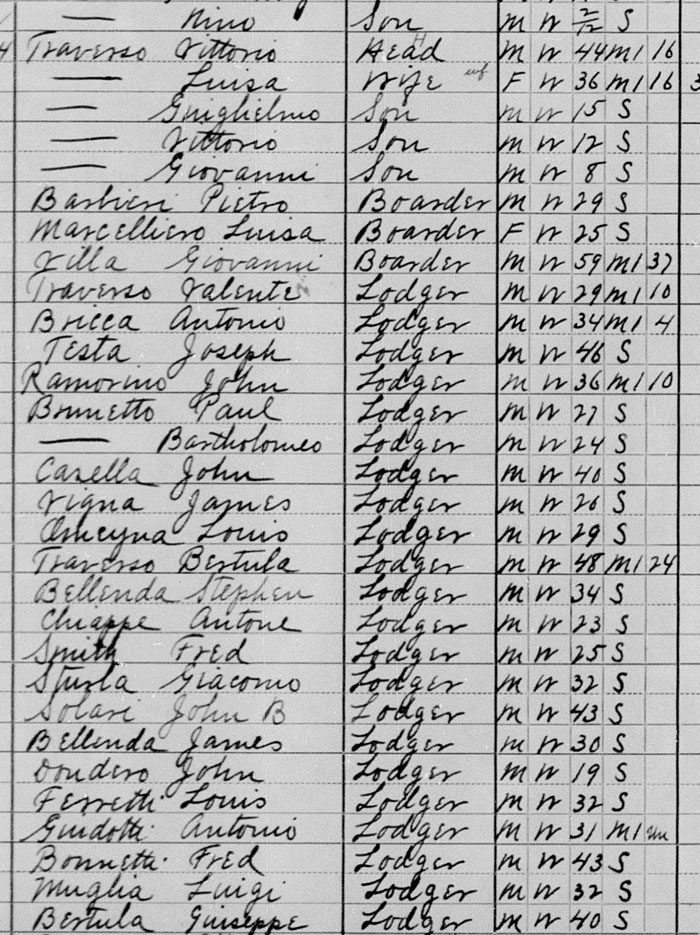 — Nino Son M W 2/12 S
4 Traverso Vittorio Head M W 44 M1 16
— Luisa Wife wf F W 36 M1 16 3
— Guiglielmo Son M W 15 S
— Vittorio Son M W 12 S
— Giovanni Son M W 8 S
Barbieri Pietro Boarder M W 29 S
Marcelliero Luisa Boarder F W 25 S
Villa Giovanni Boarder M W 59 M1 37
Traverso Valente Lodger M W 29 M1 10
Bricca Antonio Lodger M W 34 M1 4
Testa Joseph Lodger M W 46 S
Ramorino John Lodger M W 36 M1 10
Brunetto Paul Lodger M W 27 S
— Bartholomeo Lodger M W 24 S
Casella John Lodger M W 40 S
Vigna James Lodger M W 26 S
Louis Lodger M W 29 S
Traverso Bertula Lodger M W 48 M1 24
Bellenda Stephen Lodger M W 34 S
Chiappe Antone Lodger M W 23 S
Smith Fred Lodger M W 25 S
Sturla Giacomo Lodger M W 32 S
Solari John B Lodger M W 43 S
Bellenda James Lodger M W 30 S
Dondero John Lodger M W 19 S
Ferretti Louis Lodger M W 32 S
Guidotti Antonio Lodger M W 31 M1 un
Bonnetti Fred Lodger M W 43 S
Muglia Luigi Lodger M W 32 S
Bertula Guiseppe Lodger M W 40 S